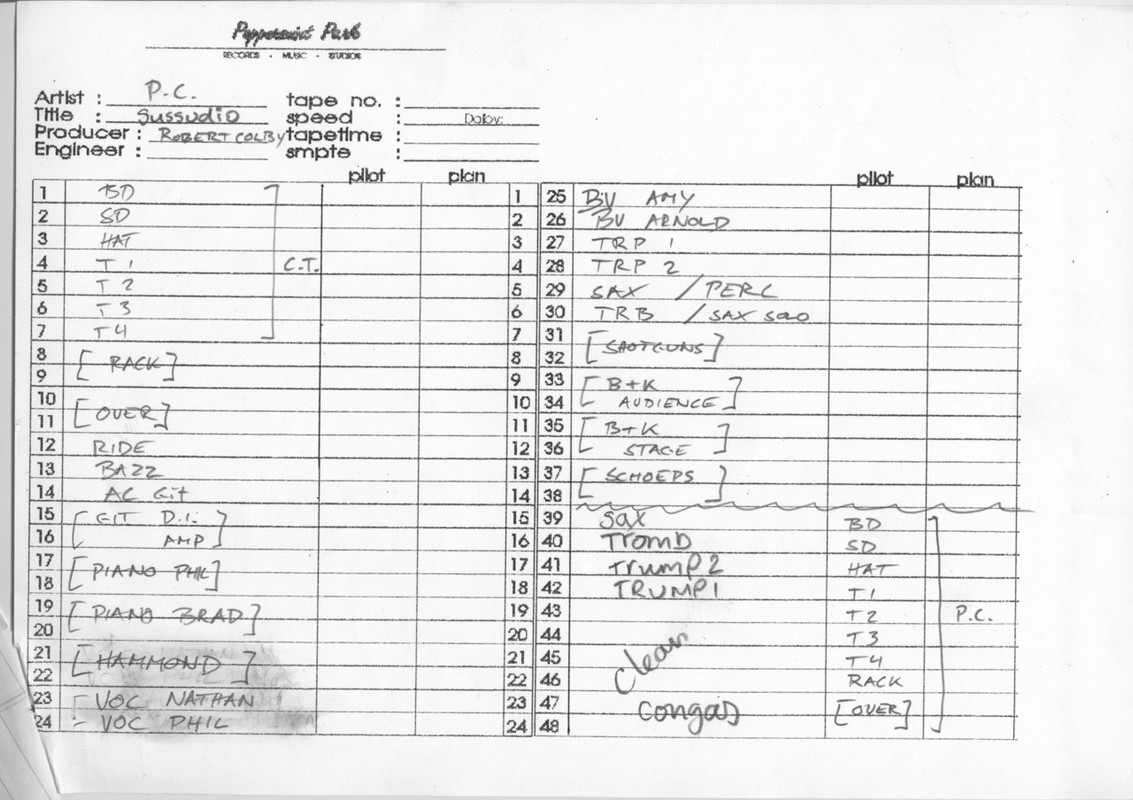 Peppermint Park
RECORDS · MUSIC · STUDIOS
Artist : P.C. tape no. :
Title : Sussudio speed : Dolby:
Producer : ROBERT COLBY tapetime :
Engineer : smpte :
pilot plan pilot plan
1 BD 1 25 BV AMY
2 SD 2 26 BV ARNOLD
3 HAT 3 27 TRP 1
4 T 1 C.T. 4 28 TRP 2
5 T 2 5 29 SAX / PERC
6 T 3 6 30 TRB / SAX SOLO
7 T 4 7 31 [SHOTGUNS]
8 [RACK] 8 32
9 9 33 [B+K
10 [OVER] 10 34 AUDIENCE]
11 11 35 [B+K
12 RIDE 12 36 STAGE]
13 BAZZ 13 37 [SCHOEPS]
14 AC Git 14 38
15 [GIT D.I. 15 39 Sax BD
16 AMP] 16 40 Tromb SD
17 [PIANO PHIL] 17 41 Trump 2 HAT
18 18 42 TRUMP 1 T 1
19 [PIANO BRAD] 19 43 T 2 P.C.
20 20 44 T 3
21 [HAMMOND] 21 45 clean T 4
22 22 46 RACK
23 VOC NATHAN 23 47 congas [OVER]
24 - VOC PHIL 24 48